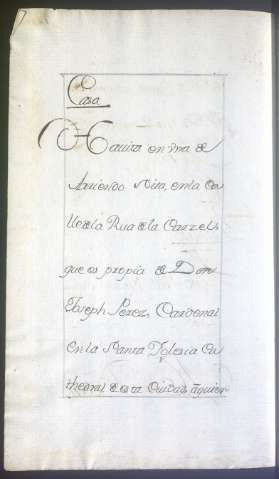 Casa
Havita en vna de
Arriendo Sita, en la Ca
lle de la Rua de la Carzel,
que es propia de Don
Joseph Perez, Cardenal
en la Santa Iglesia Ca
thedral de esta Ciudad, aquien